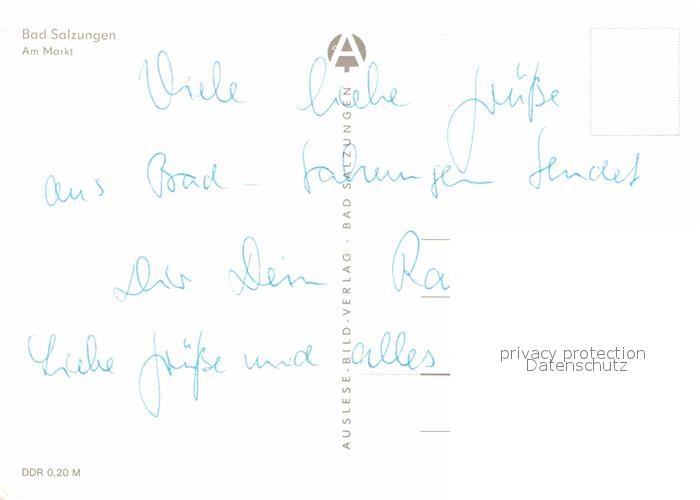 Bad Salzungen
Am Markt
Viele liebe Grüße
aus Bad-Salzungen sendet
Dir Dein Ra
Liebe Grüße und alles
AUSLESE-BILD-VERLAG · BAD SALZUNGEN
privacy protection
Datenschutz
DDR 0,20 M